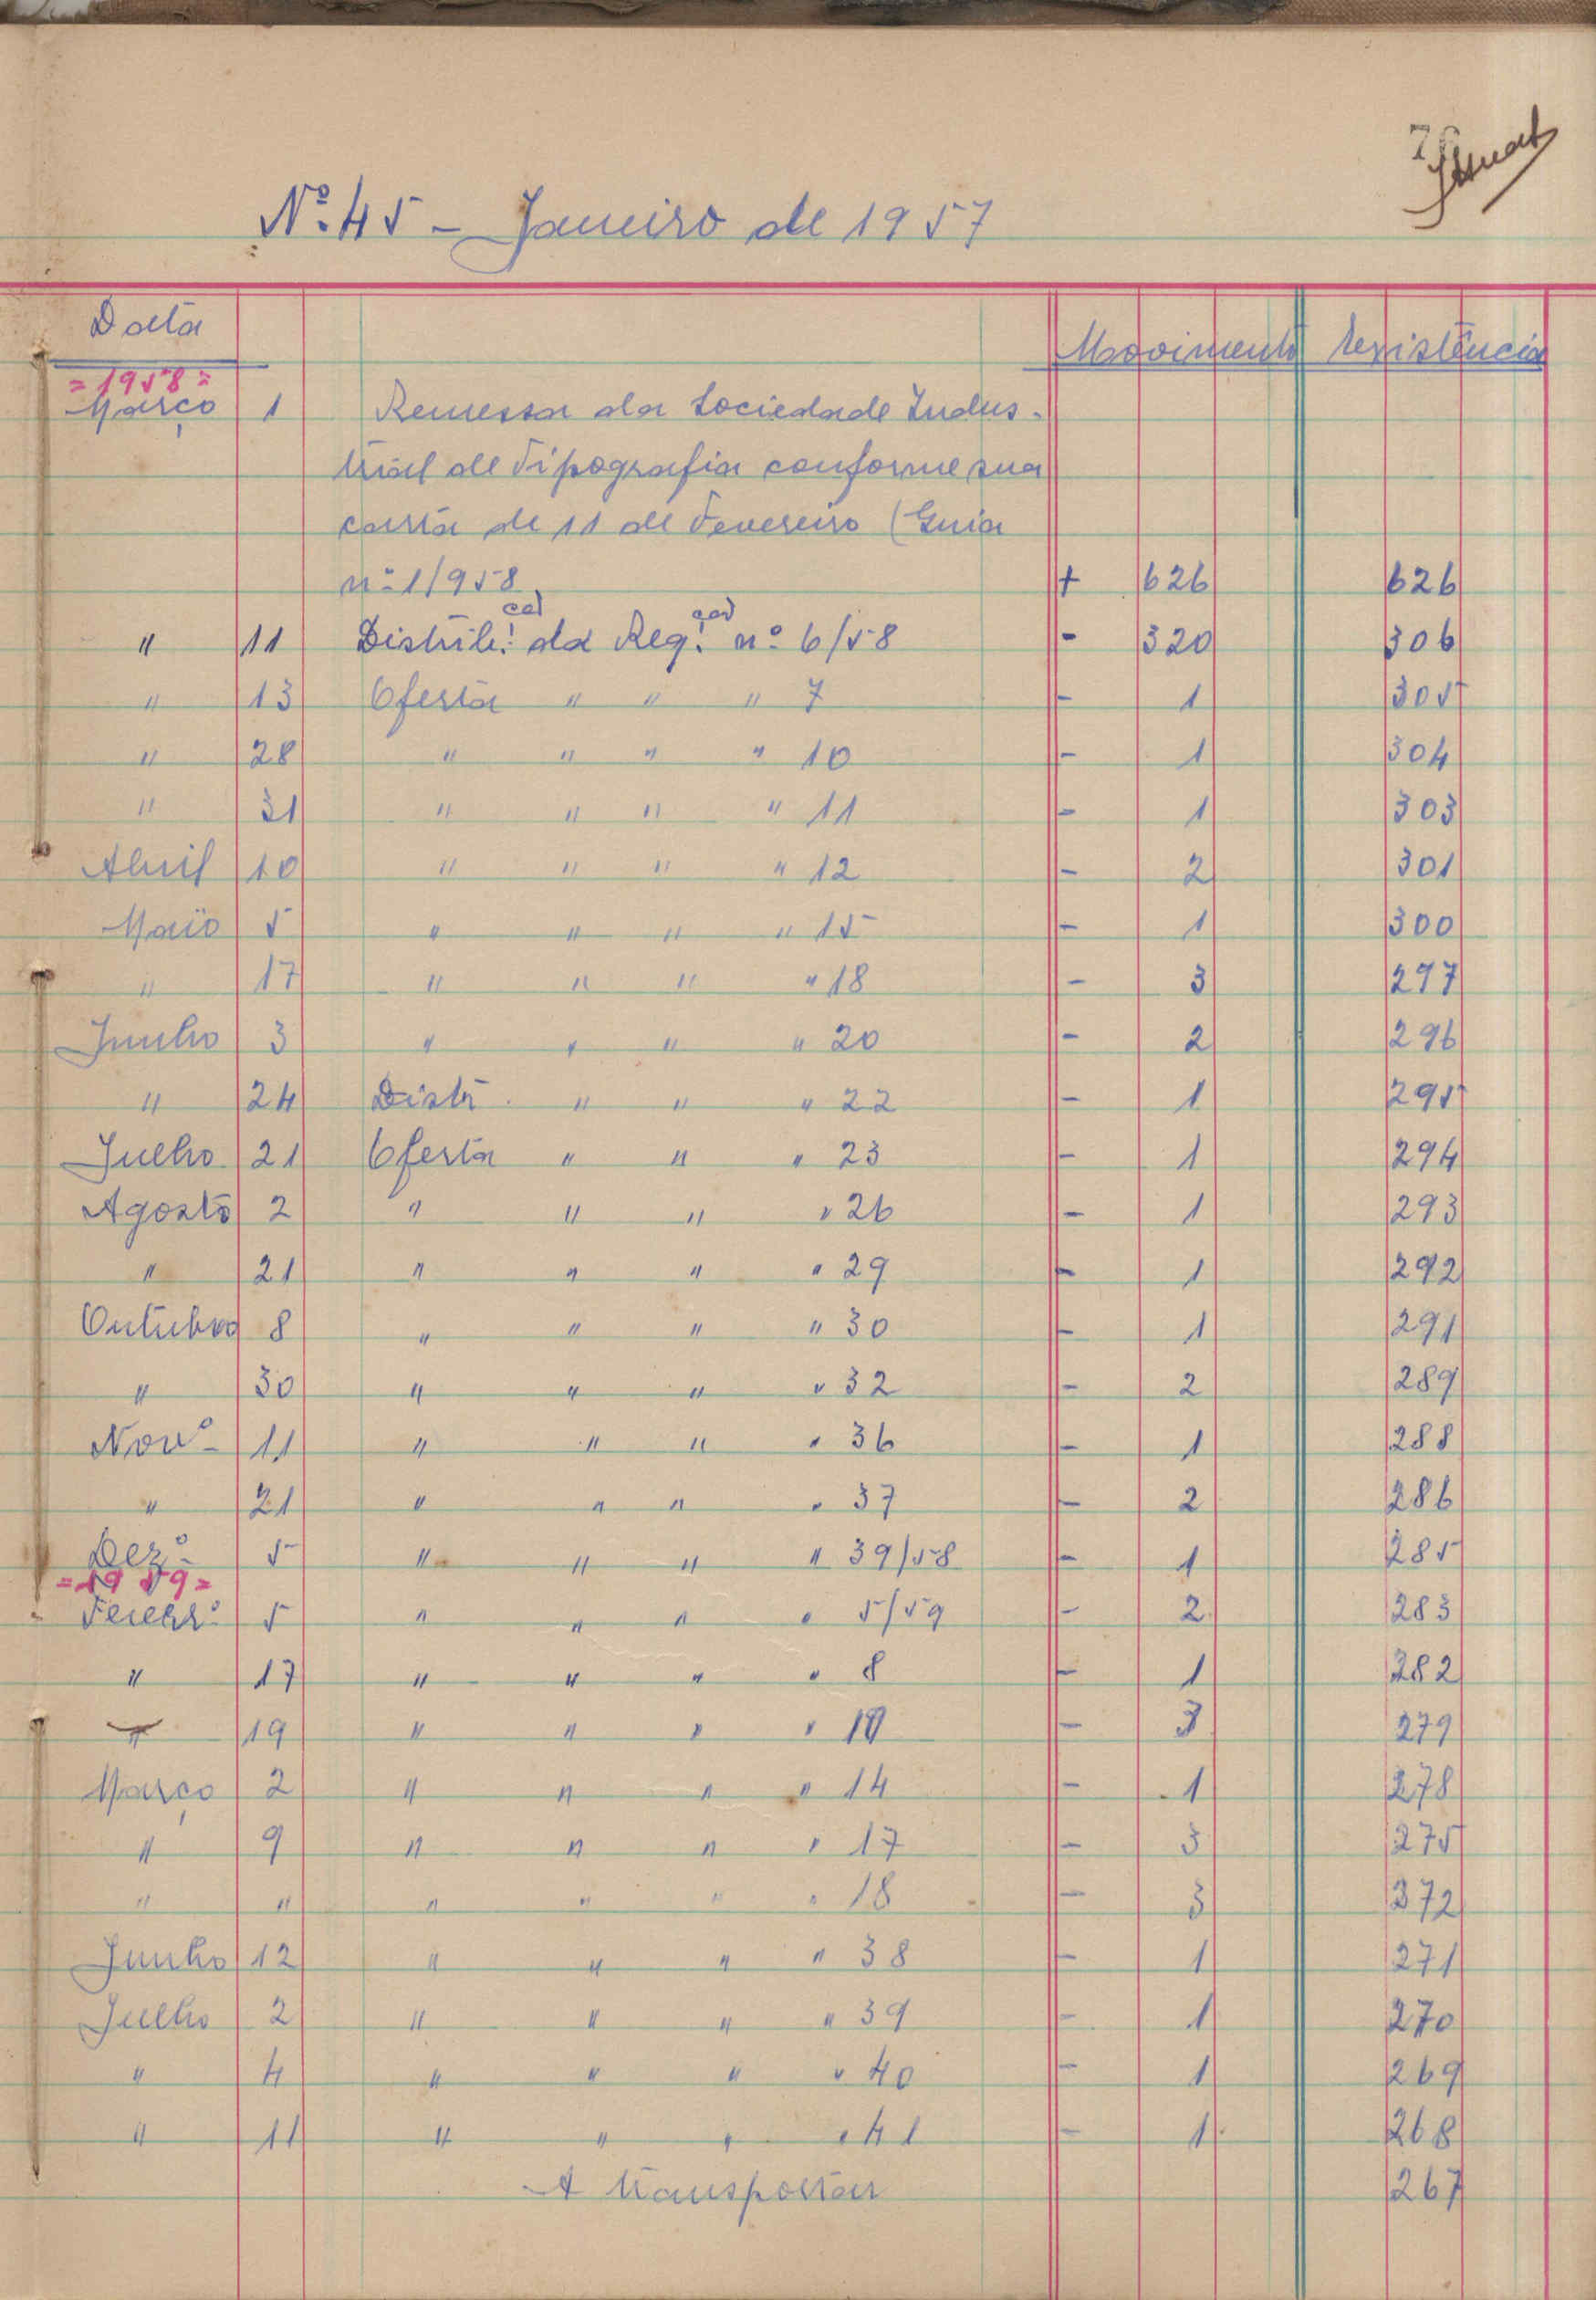 Nº 45 - Janeiro de 1957
Data Movimento Existência
=1958=
Março 1 Remessa da Sociedade Indus-
trial de Tipografia conforme sua
carta de 11 de Fevereiro (Guia
nº 1/958 + 626 626
" 11 Distrib.ção da Req.ção nº 6/58 - 320 306
" 13 Oferta " " " 7 - 1 305
" 28 " " " " 10 - 1 304
" 31 " " " " 11 - 1 303
Abril 10 " " " " 12 - 2 301
Maio 5 " " " " 15 - 1 300
" 17 " " " " 18 - 3 297
Junho 3 " " " " 20 - 2 296
" 24 Distr. " " " 22 - 1 295
Julho 21 Oferta " " " 23 - 1 294
Agosto 2 " " " " 26 - 1 293
" 21 " " " " 29 - 1 292
Outubro 8 " " " " 30 - 1 291
" 30 " " " " 32 - 2 289
Novº 11 " " " " 36 - 1 288
" 21 " " " " 37 - 2 286
Dezº 5 " " " " 39/58 - 1 285
=1959=
Feverº 5 " " " " 5/59 - 2 283
" 17 " " " " 8 - 1 282
" 19 " " " " 10 - 3 279
Março 2 " " " " 14 - 1 278
" 9 " " " " 17 - 3 275
" " " " " " 18 - 3 372
Junho 12 " " " " 38 - 1 271
Julho 2 " " " " 39 - 1 270
" 4 " " " " 40 - 1 269
" 11 " " " " 41 - 1 268
A transportar 267